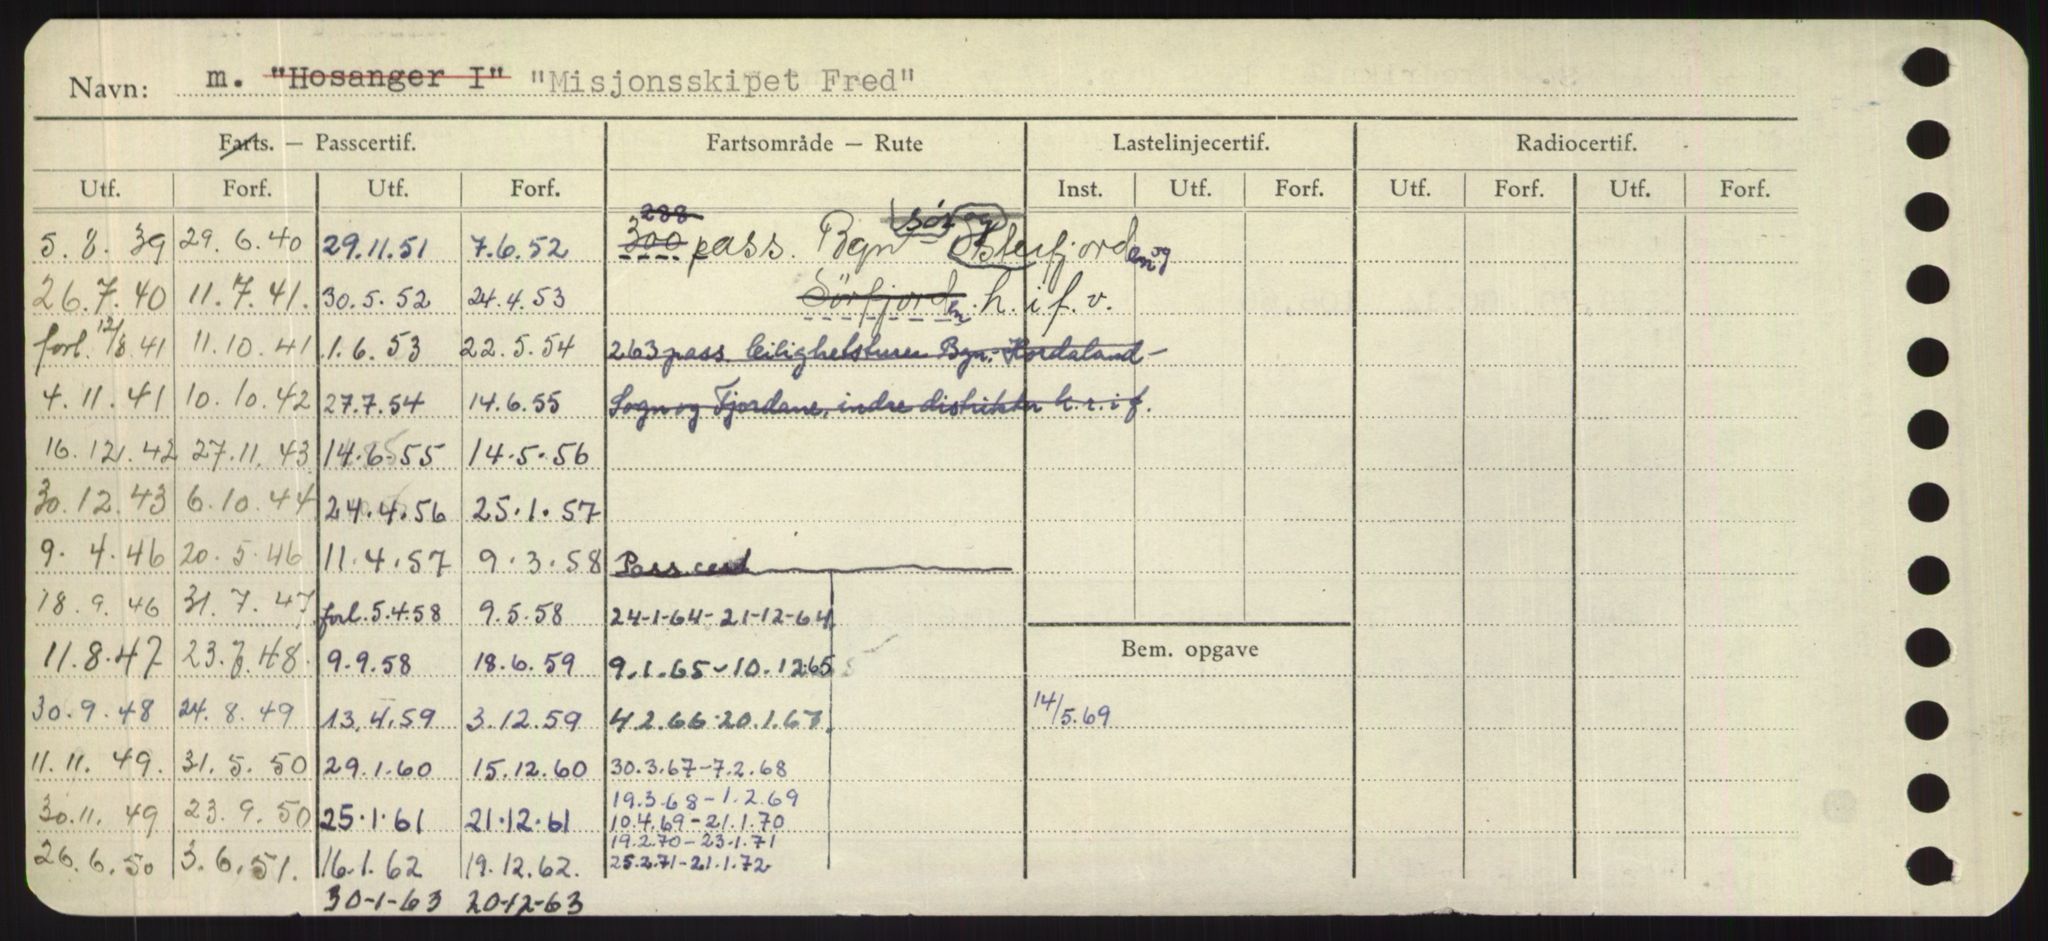 Navn: m. "Hosanger I" "Misjonsskipet Fred"
Farts. — Passcertif. Fartsområde — Rute Lastelinjecertif. Radiocertif.
Utf. Forf. Utf. Forf. Inst. Utf. Forf. Utf. Forf. Utf. Forf.
288 sør og
5. 8. 39 29. 6. 40 29.11.51 7.6.52 300 pass. Bgn Osterfjorden og
26. 7. 40 11. 7. 41. 30.5.52 24.4.53 Sörfjorden h. i f. v.
forl. 12/8 41 11. 10. 41 1.6.53 22.5.54 263 pass. leilighetsturer Bgn.-Hordaland-
4. 11. 41 10. 10. 42 27.7.54 14.6.55 Sogn og Fjordane, indre distrikter h.r.i f.
16. 12. 42 27. 11. 43 14.6.55 14.5.56
30. 12. 43 6. 10. 44 24.4.56 25.1.57
9. 4. 46 20. 5. 46 11.4.57 9.3.58 Pass cert
18. 9. 46 31. 7. 47 forl. 5.4.58 9.5.58 24-1-64- 21-12-64
11. 8. 47 23. 7. 48. 9.9.58 18.6.59 9.1.65-10.12.65
Bem. opgave
30. 9. 48 24. 8. 49 13.4.59 3.12.59 4.2.66-20.1.67. 14/5.69
11. 11. 49. 31. 5. 50 29.1.60 15.12.60 30.3.67-7.2.68
19.3.68-1.2.69
30. 11. 49 23. 9. 50 25.1.61 21.12.61 10.4.69-21.1.70
19.2.70-23.1.71
26. 6. 50 3. 6. 51. 16.1.62 19.12.62. 25.2.71-21.1.72
30-1-63 20-12-63